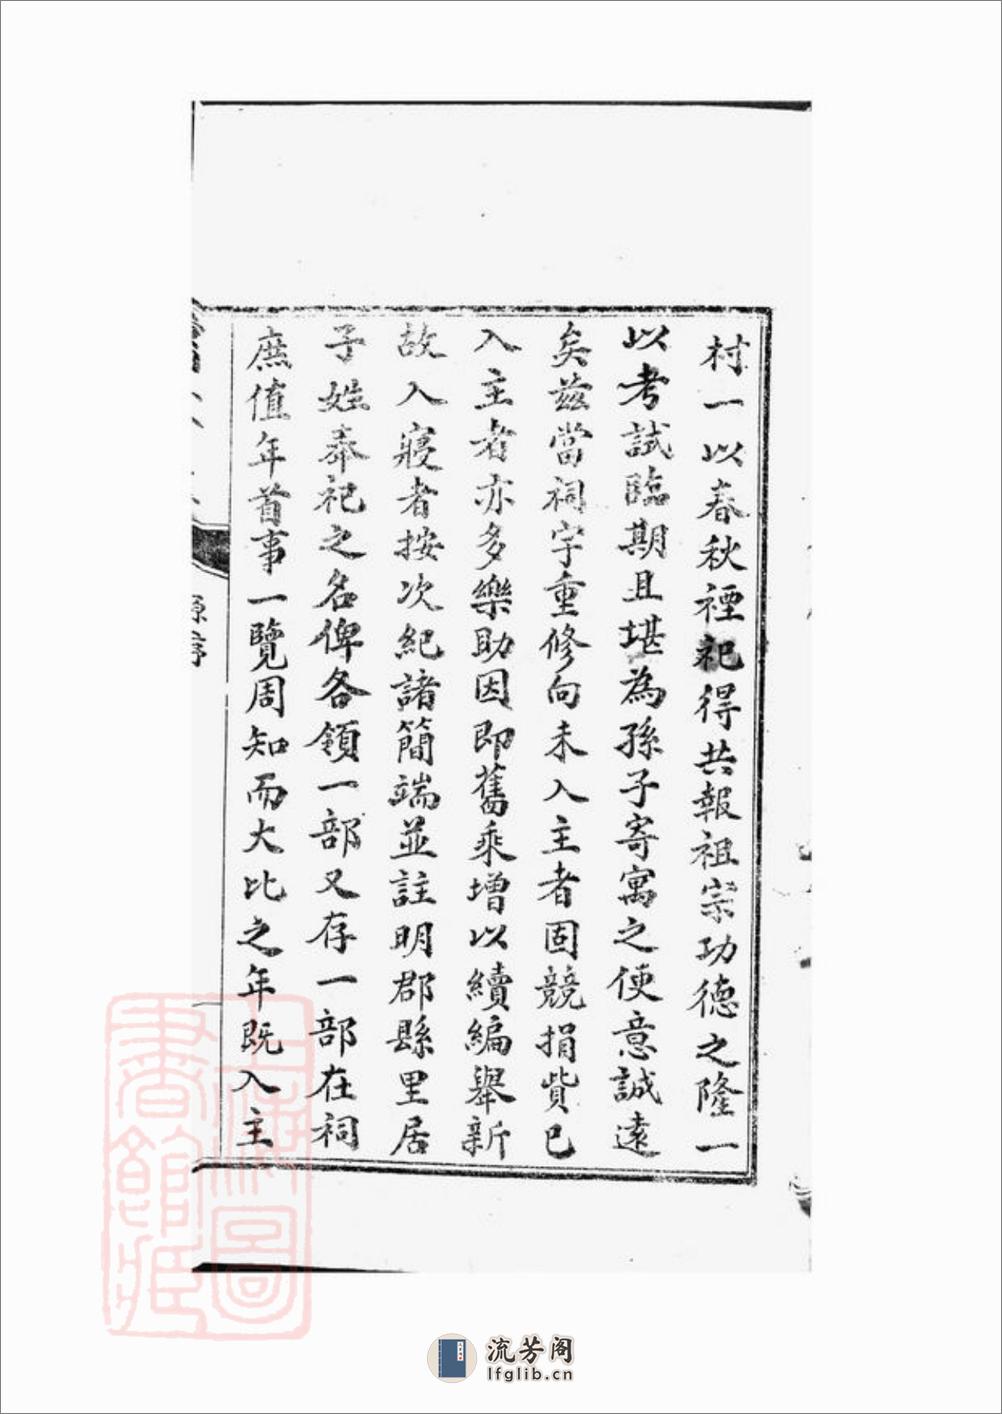 村一以春秋禋祀得共報祖宗功德之隆一
以考試臨期且堪為孫子寄寓之便意誠遠
矣茲當祠宇重修向未入主者固競捐貲已
入主者亦多樂助因即舊乘增以續編舉新
故入寢者按次紀諸簡端並註明郡縣里居
子姓奉祀之名俾各領一部又存一部在祠
庶值年首事一覽周知而大比之年既入主
源序
上海圖書館藏
流芳阁
lfglib.cn